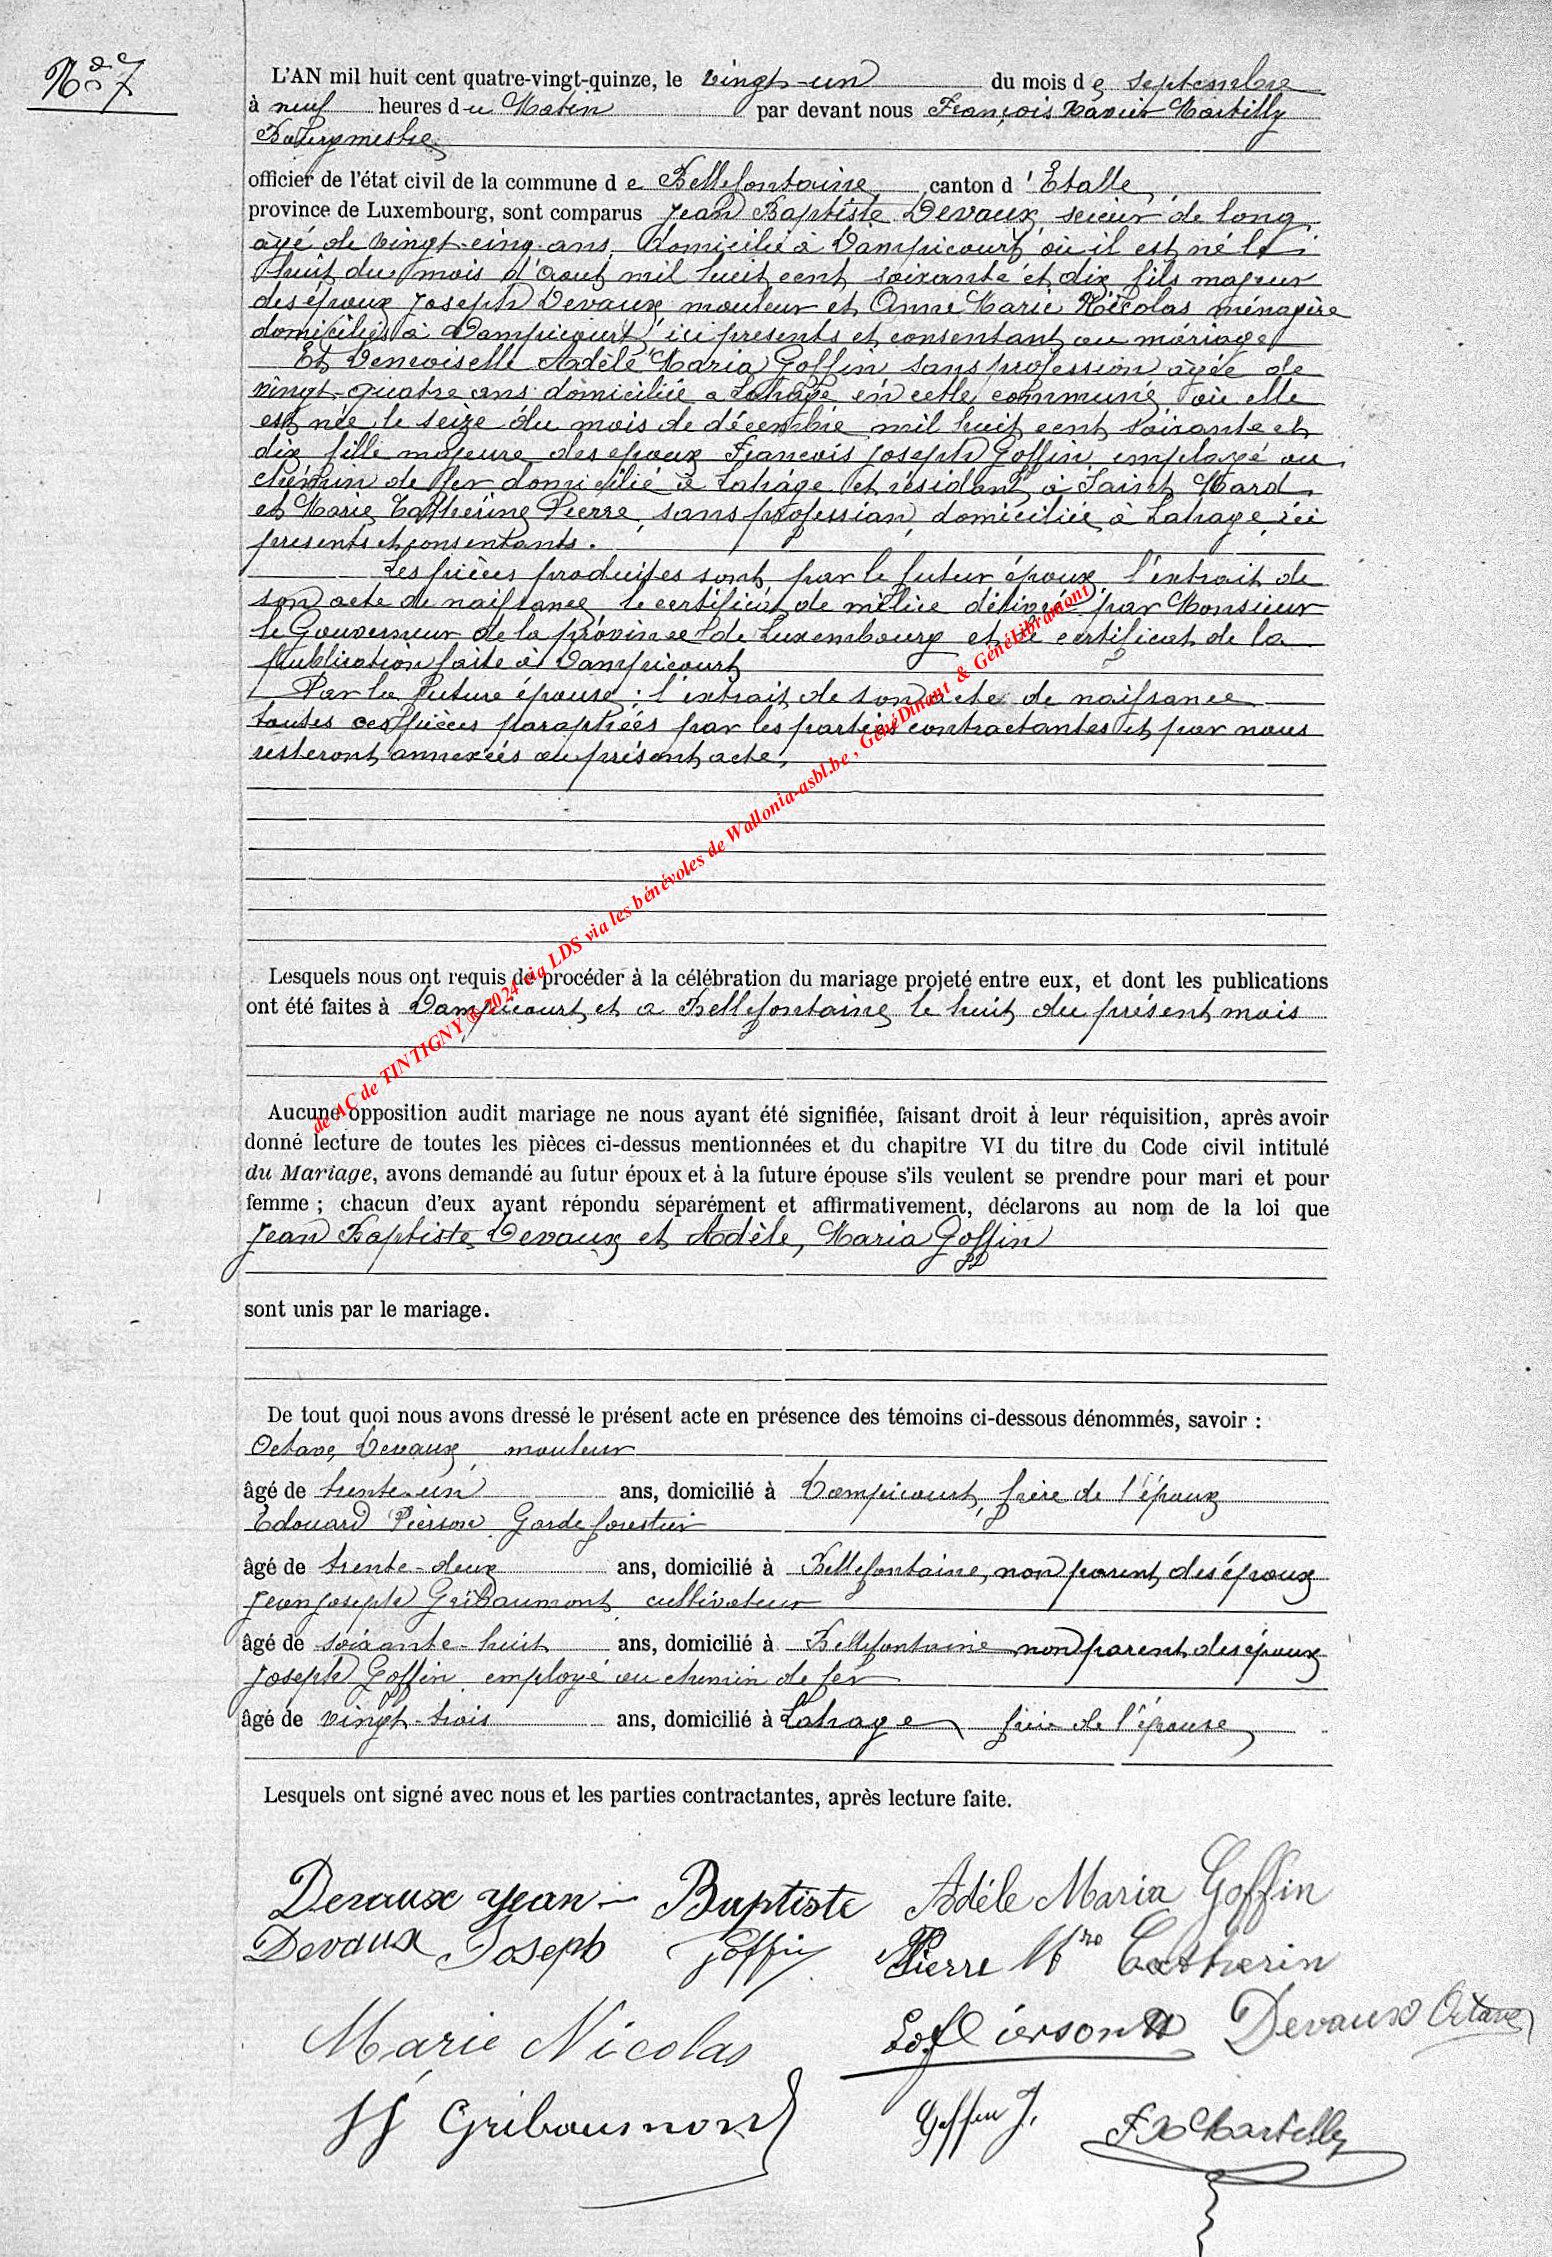 No 7
L'AN mil huit cent quatre-vingt-quinze, le vingt-un du mois de septembre
à neuf heures du Matin par devant nous François Xavier Martilly
Bourgmestre
officier de l'état civil de la commune de Bellefontaine canton d'Etalle
province de Luxembourg, sont comparus Jean Baptiste Devaux scieur de long
âgé de vingt-cinq ans, domicilié à Dampicourt où il est né le
huit du mois d'aout mil huit cent soixante et dix fils majeur
des époux Joseph Devaux, mouleur et Anne Marie Nicolas ménagère
domiciliés à Dampicourt ici presents et consentant au mariage
Et Demoiselle Adèle Maria Goffin sans profession âgée de
vingt-quatre ans domiciliée a Lahage en cette commune, où elle
est née le seize du mois de décembre mil huit cent soixante et
dix fille majeure des epoux François Joseph Goffin employé au
chemin de fer domicilié à Lahage et résidant à Saint Mard
et Marie Catherine Pierre, sans profession, domiciliée à Lahage, ici
presents et consentants.
Les pièces produites sont par le futur époux l'extrait de
son acte de naissance, le certificat de milice délivré par Monsieur
le Gouverneur de la province de Luxembourg et le certificat de la
Publication faite à Dampicourt
Par la future épouse : l'extrait de son acte de naissance
toutes ces pièces paraphées par les parties contractantes et par nous
resteront annexées au présent acte,
Lesquels nous ont requis de procéder à la célébration du mariage projeté entre eux, et dont les publications
ont été faites à Dampicourt et a Bellefontaine le huit du présent mois
Aucune opposition audit mariage ne nous ayant été signifiée, faisant droit à leur réquisition, après avoir
donné lecture de toutes les pièces ci-dessus mentionnées et du chapitre VI du titre du Code civil intitulé
du Mariage, avons demandé au futur époux et à la future épouse s'ils veulent se prendre pour mari et pour
femme ; chacun d'eux ayant répondu séparément et affirmativement, déclarons au nom de la loi que
Jean Baptiste Devaux et Adèle, Maria Goffin
sont unis par le mariage.
De tout quoi nous avons dressé le présent acte en présence des témoins ci-dessous dénommés, savoir :
Octave Devaux, mouleur
âgé de trente-un ans, domicilié à Dampicourt, frère de l'époux
Edouard Pierson Garde forestier
âgé de trente-deux ans, domicilié à Bellefontaine, non parent des époux
Jean Joseph Gribaumont cultivateur
âgé de soixante-huit ans, domicilié à Bellefontaine non parent des époux
Joseph Goffin employé au chemin de fer
âgé de vingt-trois ans, domicilié à Lahage frère de l'épouse
Lesquels ont signé avec nous et les parties contractantes, après lecture faite.
Devaux Jean-Baptiste Adéle Maria Goffin
Devaux Joseph Goffin Pierre Mre Catherin
Marie Nicolas Pierson Devaux Octave
JJ Gribaumont Goffin J. FX Martilly
de AC de TINTIGNY ® 2024 via LDS via les bénévoles de Wallonia-asbl.be, GénéDinant & GénéLibramont